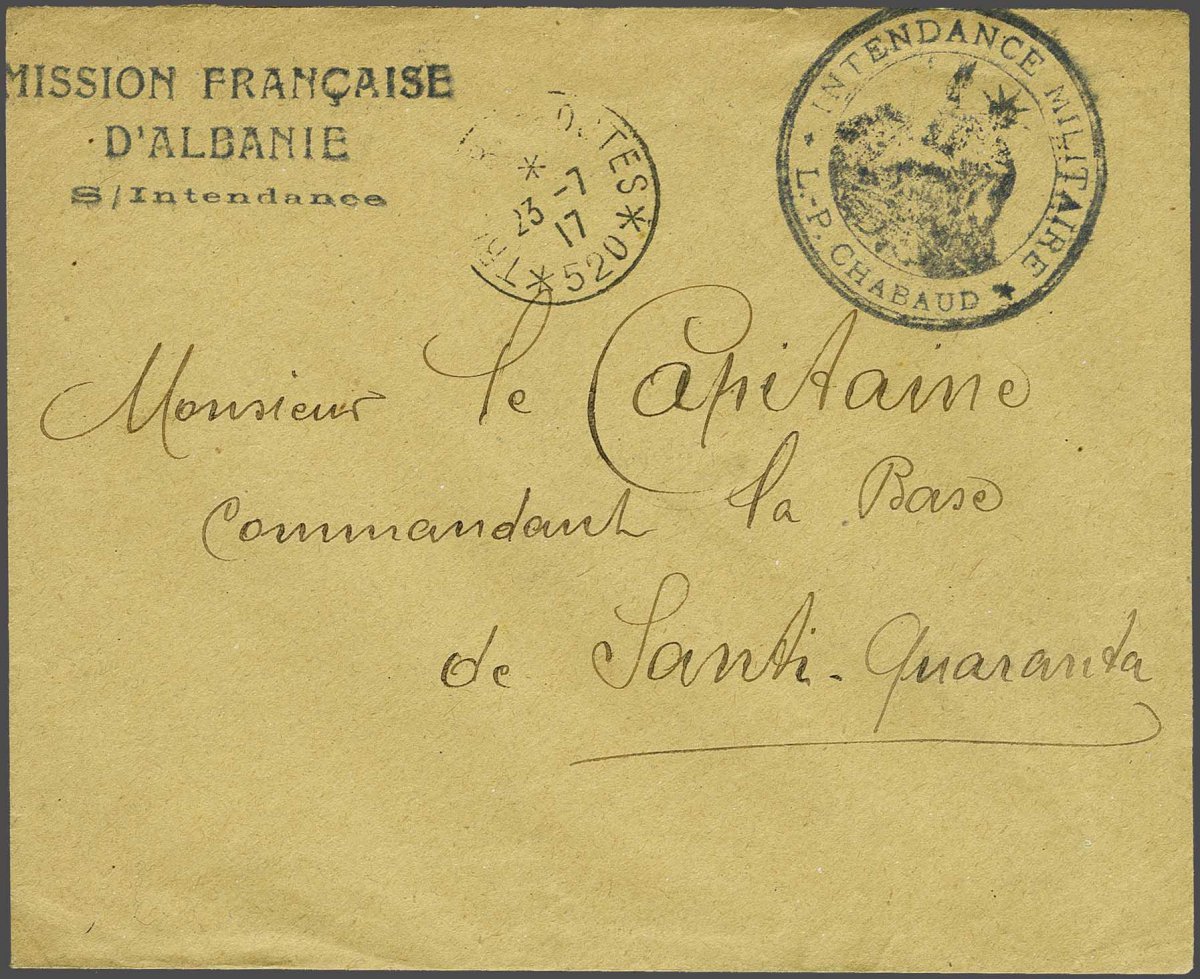 MISSION FRANÇAISE
D'ALBANIE
S/Intendance
POSTES * 520 *
*
23 -7
17
INTENDANCE MILITAIRE
L.-P. CHABAUD
Monsieur le Capitaine
Commandant la Base
de Santi-Quaranta